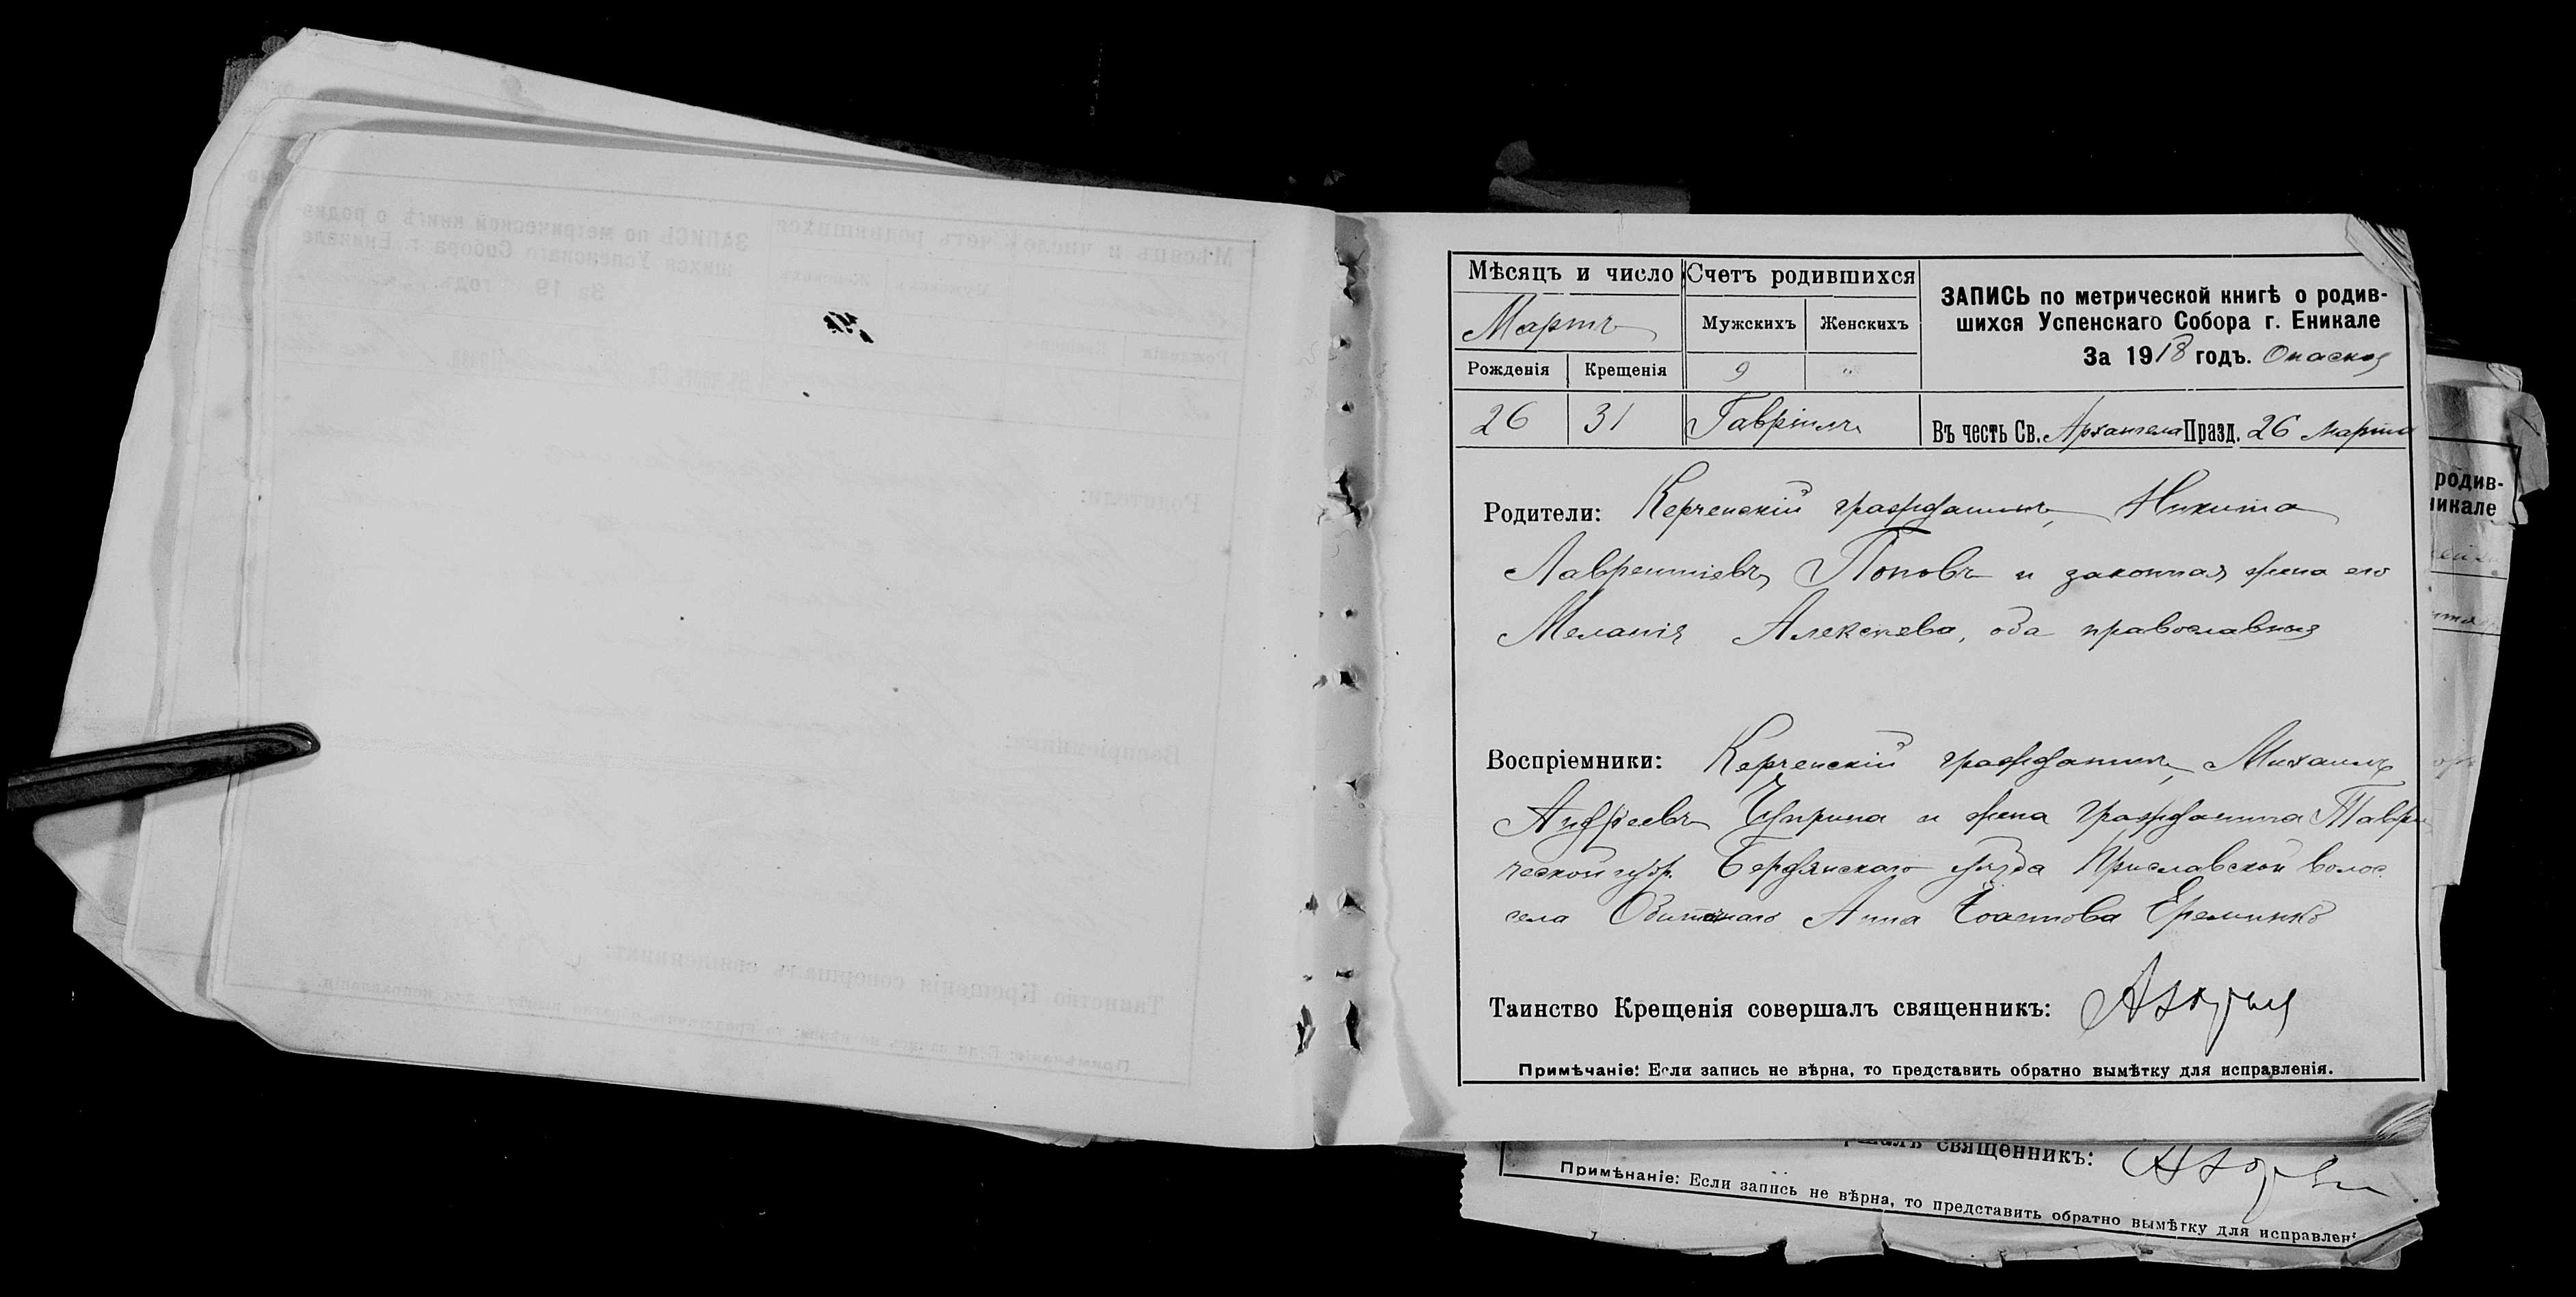 Мѣсяцъ и число
Мартъ
Рожденія Крещенія
26 31
Счетъ родившихся
Мужскихъ Женскихъ
9 "
Гавріилъ
ЗАПИСЬ по метрической книгѣ о родив-
шихся Успенскаго Собора г. Еникале
За 1918 годъ. Опасная
Въ честь Св. Архангела Празд. 26 марта
Родители: Керченскій гражданинъ, Никита
Лаврентіевъ Поповъ и законная жена его
Меланія Алексѣева, оба православныя
Воспріемники: Керченскій гражданинъ, Михаилъ
Андреевъ Чуприна и жена гражданина Таври
ческой губ. Бердянскаго уѣзда волос.
села Обиточнаго Анна Ереминко
Таинство Крещенія совершалъ священникъ:
Примѣчаніе: Если запись не вѣрна, то представить обратно вымѣтку для исправленія.
родив-
никале
священникъ:
Примѣнаніе: Если запись не вѣрна, то представить обратно вымѣтку для исправлені